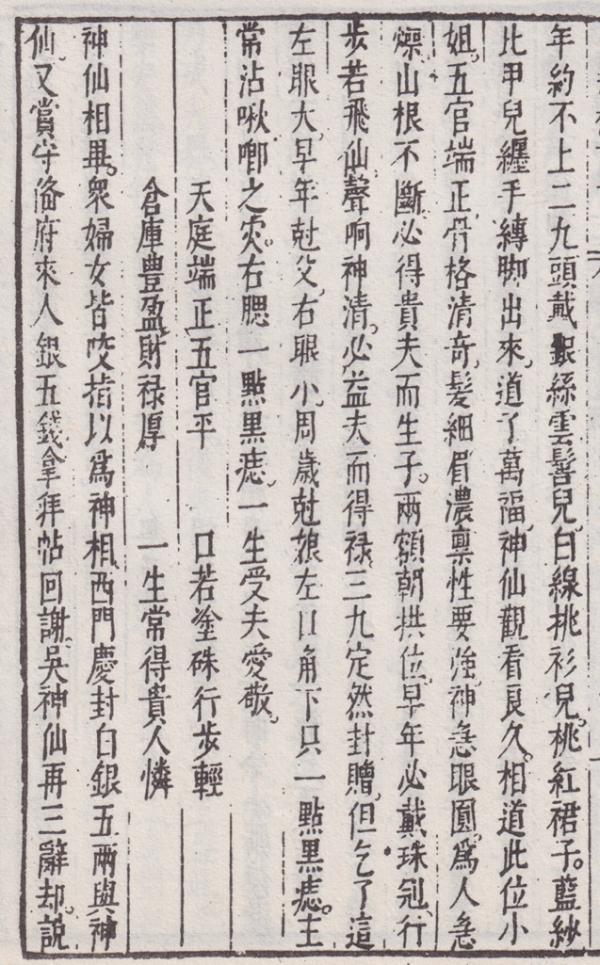 年約不上二九頭戴銀絲雲髻兒白線挑衫兒桃紅裙子藍紗
比甲兒纏手縛脚出來道了萬福神仙觀看良久相道此位小
姐五官端正骨格清奇髮細眉濃禀性要强神急眼圓爲人急
燥山根不斷必得貴夫而生子兩額朝拱位早年必戴珠冠行
步若飛仙聲响神清必益夫而得禄三九定然封贈但乞了這
左眼大早年尅父右眼小周歲尅娘左口角下只一點黑痣主
常沾啾唧之灾右腮一點黑痣一生受夫愛敬
天庭端正五官平　口若塗硃行步輕
倉庫豐盈財禄厚　一生常得貴人憐
神仙相畢衆婦女皆咬指以爲神相西門慶封白銀五兩與神
仙又賞守備府來人銀五錢拿拜帖回謝吳神仙再三辭却說